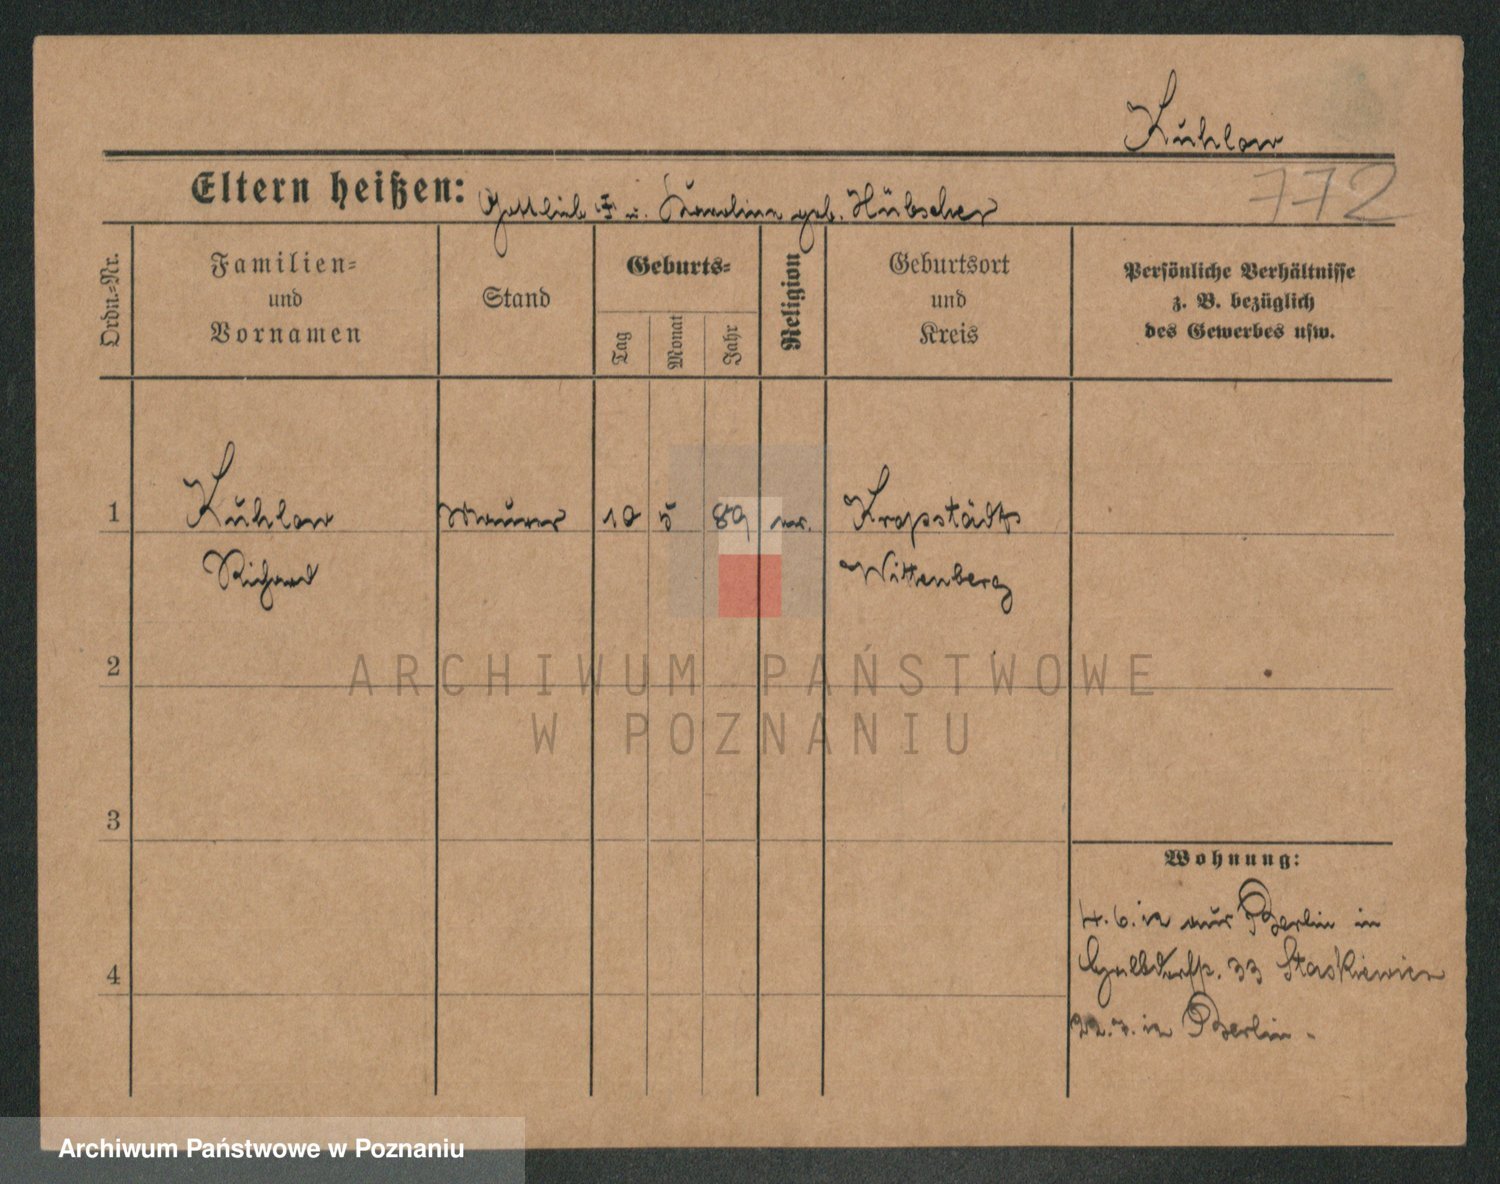 Kuhlow
772
Eltern heißen: Gottlieb † u. Karoline geb. Hübscher
Ordn.-Nr.
Familien-
und
Vornamen
Stand
Geburts-
Tag
Monat
Jahr
Religion
Geburtsort
und
Kreis
Persönliche Verhältnisse
z. B. bezüglich
des Gewerbes usw.
1 Kuhlow Maurer 10 5 89 ev. Kropstädt
Richard Wittenberg
2
ARCHIWUM PAŃSTWOWE
W POZNANIU
3
Wohnung:
4. 6. 12 aus Berlin in
33 Staskiewicz
4
22. 7. 12 Berlin.
Archiwum Państwowe w Poznaniu